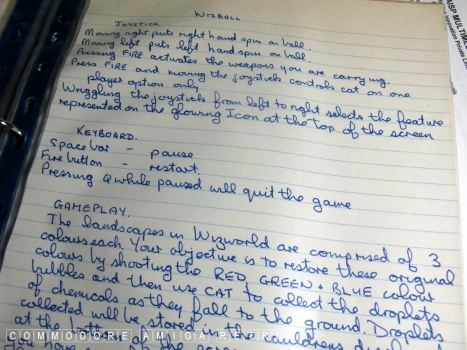 WIZBALL
JOYSTICK
Moving right puts right hand spin on ball.
Moving left puts left hand spin on ball.
Pressing FIRE activates the weapons you are carrying.
Press FIRE and moving the joystick controls cat on one
player option only
Wriggling the joysticks from left to right selects the feature
represented on the glowing Icon at the top of the screen
KEYBOARD.
Space bar - pause
Fire button - restart.
Pressing Q while paused will quit the game
GAMEPLAY.
The landscapes in Wizworld are comprised of 3
colours each. Your objective is to restore these original
colours by shooting the RED GREEN + BLUE colour
bubbles and then use CAT to collect the droplets
of chemicals as they fall to the ground. Droplets
collected will be stored in the cauldrons
at the bottom of the
COMMODORE AMIGA
MULTIME